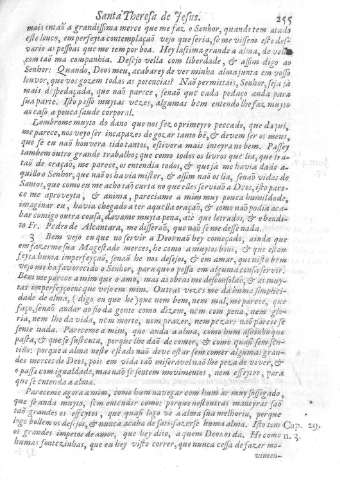 Santa Theresa de Jesus. 255
mais então a grandissima merce que me faz o Senhor, quando tem atado
este louco, em perfeyta contemplação vejo que seria, se me vissem este desvario
as pessoas que me tem por boa. Hey lastima grande a alma, de vella
em tão má companhia. Desejo vella com liberdade, & assim digo ao
Senhor: Quando, Deos meu, acabarey de ver minha alma junta em vosso
louvor, que vos gozem todas as potencias? Não permittais, Senhor, seja já
mais despedaçada, que não parece, senão que cada pedaço anda para
sua parte. Isto passo muytas vezes, algumas bem entendo lhe faz muyto
ao caso a pouca saude corporal.
Lembrome muyto do dano que nos fez o primeyro peccado, que daqui,
me parece, nos veyo ser incapazes de gozar tanto bē, & devem ser os meus,
que se eu não houvera tido tantos, estivera mais inteyra no bem. Passey
tambem outro grande trabalho, que como todos os livros que lia, que tratão
de oração, me parece, os entendia todos, & que já me havia dado aquillo
o Senhor, que não os havia mister, & assim não os lia, senão vidas de
Santos, que como eu me acho tão curta no que elles servião a Deos, isto parece
me aproveyta, & anima, pareciame a mim muy pouca humildade,
imaginar eu, havia chegado a ter aquella oração, & como não podia acabar
comigo outra cousa, davame muyta pena, até que letrados, & o bendito
Fr. Pedro de Alcantara, me disserão, que não se me desse nada.
3 Bem vejo eu que no servir a Deos não hey começado, ainda que
em fazerme Sua Magestade merces, he como a muytos bons, & que estou
feyta huma imperfeyção, senão he nos desejos, & em amar, que nisto bem
vejo me ha favorecido o Senhor, para que o possa em alguma cousa servir.
Bem me parece a mim que o amo, mas as obras me desconsolão, & as muytas
imperfeyçoens que vejo em mim. Outras vezes me dá huma simplicidade
de alma, (digo eu que he) que nem bem, nem mal, me parece, que
faço, senão andar ao fio da gente como dizem, nem com pena, nem gloria,
nem lhe da vida, nem morte, nem prazer, nem pezar: não parece se
sente nada. Pareceme a mim, que anda a alma, como hum asninho que
pasta, & que se sustenta, porque lhe dão de comer, & come quasi sem sentillo:
porque a alma neste estado não deve estar sem comer algumas grandes
merces de Deos, pois em vida tão miseravel não lhe peza de viver, &
o passa com igualdade, mas não se sentem movimentos, nem effeytos, para
que se entenda a alma.
Pareceme agora a mim, como hum navegar com hum ar muy sossegado,
que se anda muyto, sem entender como: porque nestoutras maneyras são
tão grandes os effeytos, que quasi logo vê a alma sua melhoria, porque
logo bollem os desejos, & nunca acaba de satisfazerse huma alma. Isto tem Cap. 29.
os grandes impetos de amor, que hey dito, a quem Deos os dá. He como n. 3.
humas fontezinhas, que eu hey visto correr, que nunca cessa de fazer movimen-